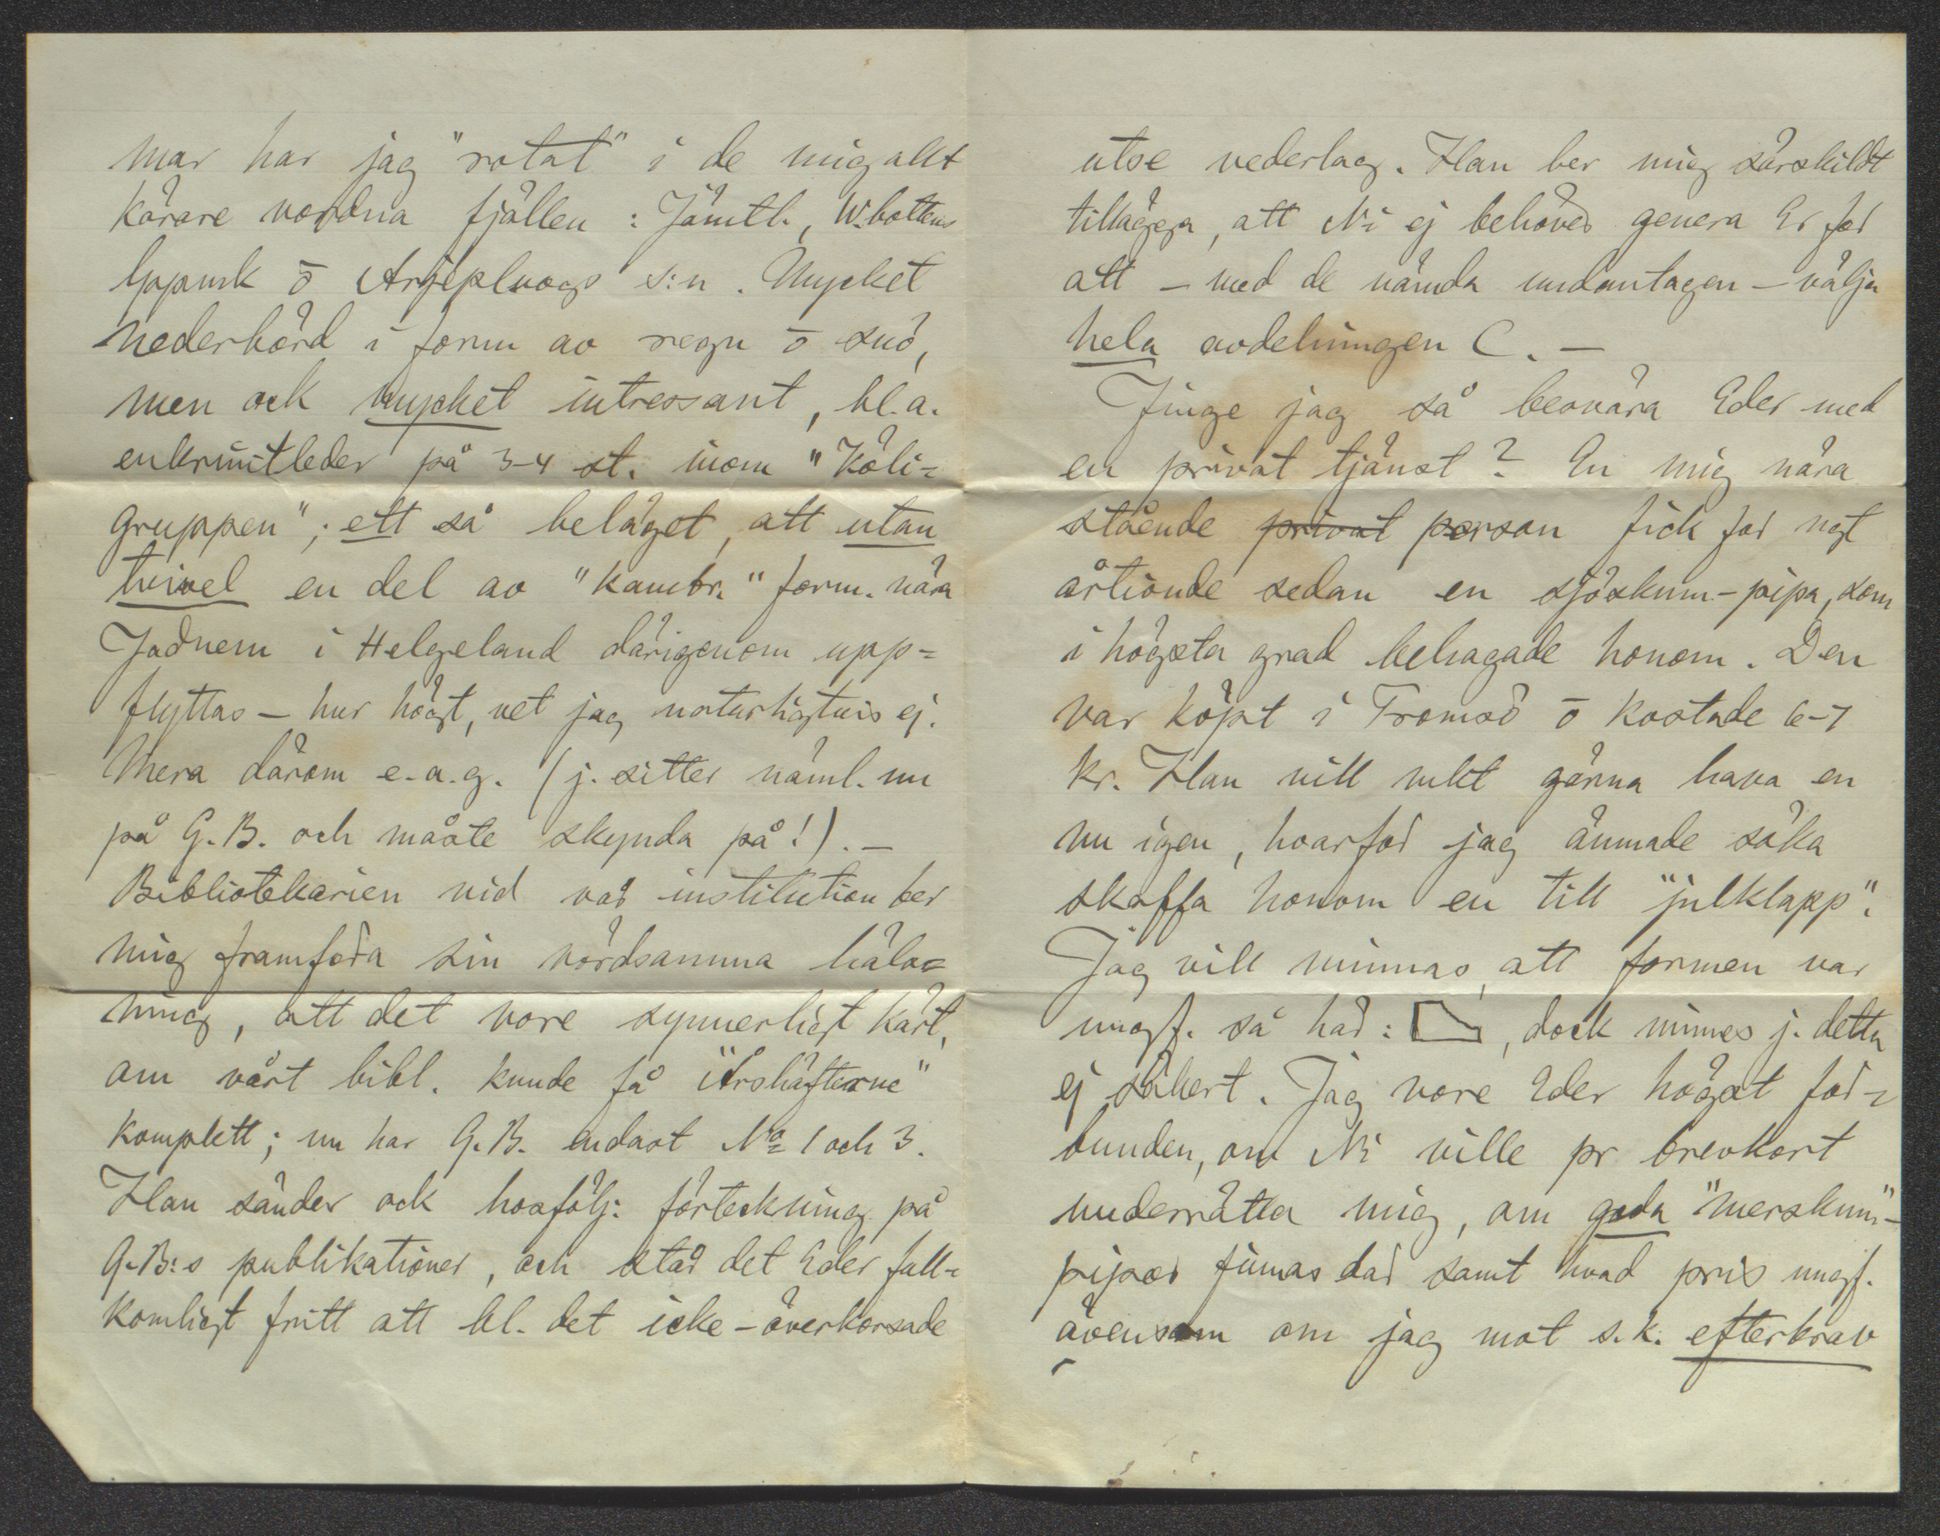 mar har jag "rotat" i de mig allt
kärare vordna fjällen: Jämtl., W.bottens
lappmk ō Arjepluogs s:n. Mycket
nederbörd i form av regn ō snö,
men ock mycket intressant, bl.a.
enkrinitleder på 3-4 st. inom "Köli=
gruppen"; ett så beläget, att utan
tvivel en del av "kambr." form. nära
Jadnem i Helgeland därigenom upp=
flyttas - hur högt, vet jag naturligtvis ej.
Mera därom e.a.g. (j. sitter näml. nu
på G.B. och måste skynda på!). -
Bibliotekarien vid vår institution ber
mig framföra sin vördsamma häls=
ning, att det vore synnerligt kärt,
om vårt bibl. kunde få "Årshäfterne"
komplett; nu har G.B. endast No 1 och 3.
Han sänder ock hosfölj: förteckning på
G.B:s publikationer, och står det Eder full=
komligt fritt att bl. det icke-överkorsade
utse vederlag. Han ber mig särskildt
tillägga, att Ni ej behöver genera Er för
att - med de nämda undantagen - välja
hela avdelningen C. -
Finge jag så besvära Eder med
en privat tjänst? En mig nära
stående privat person fick för ngt
årtionde sedan en sjöskum-pipa, som
i högsta grad behagade honom. Den
var köpt i Tromsö ō kostade 6-7
kr. Han vill mkt gärna hava en
nu igen, hvarför jag ämnade söka
skaffa honom en till "julklapp".
Jag vill minnas, att formen var
ungf. så här: , dock minnes j. detta
ej säkert. Jag vore Eder högst för=
bunden, om Ni ville pr brevkort
underrätta mig, om goda "merskum"-
pipor finnas där samt hvad pris ungf.
ävensom om jag mot s.k. efterkrav